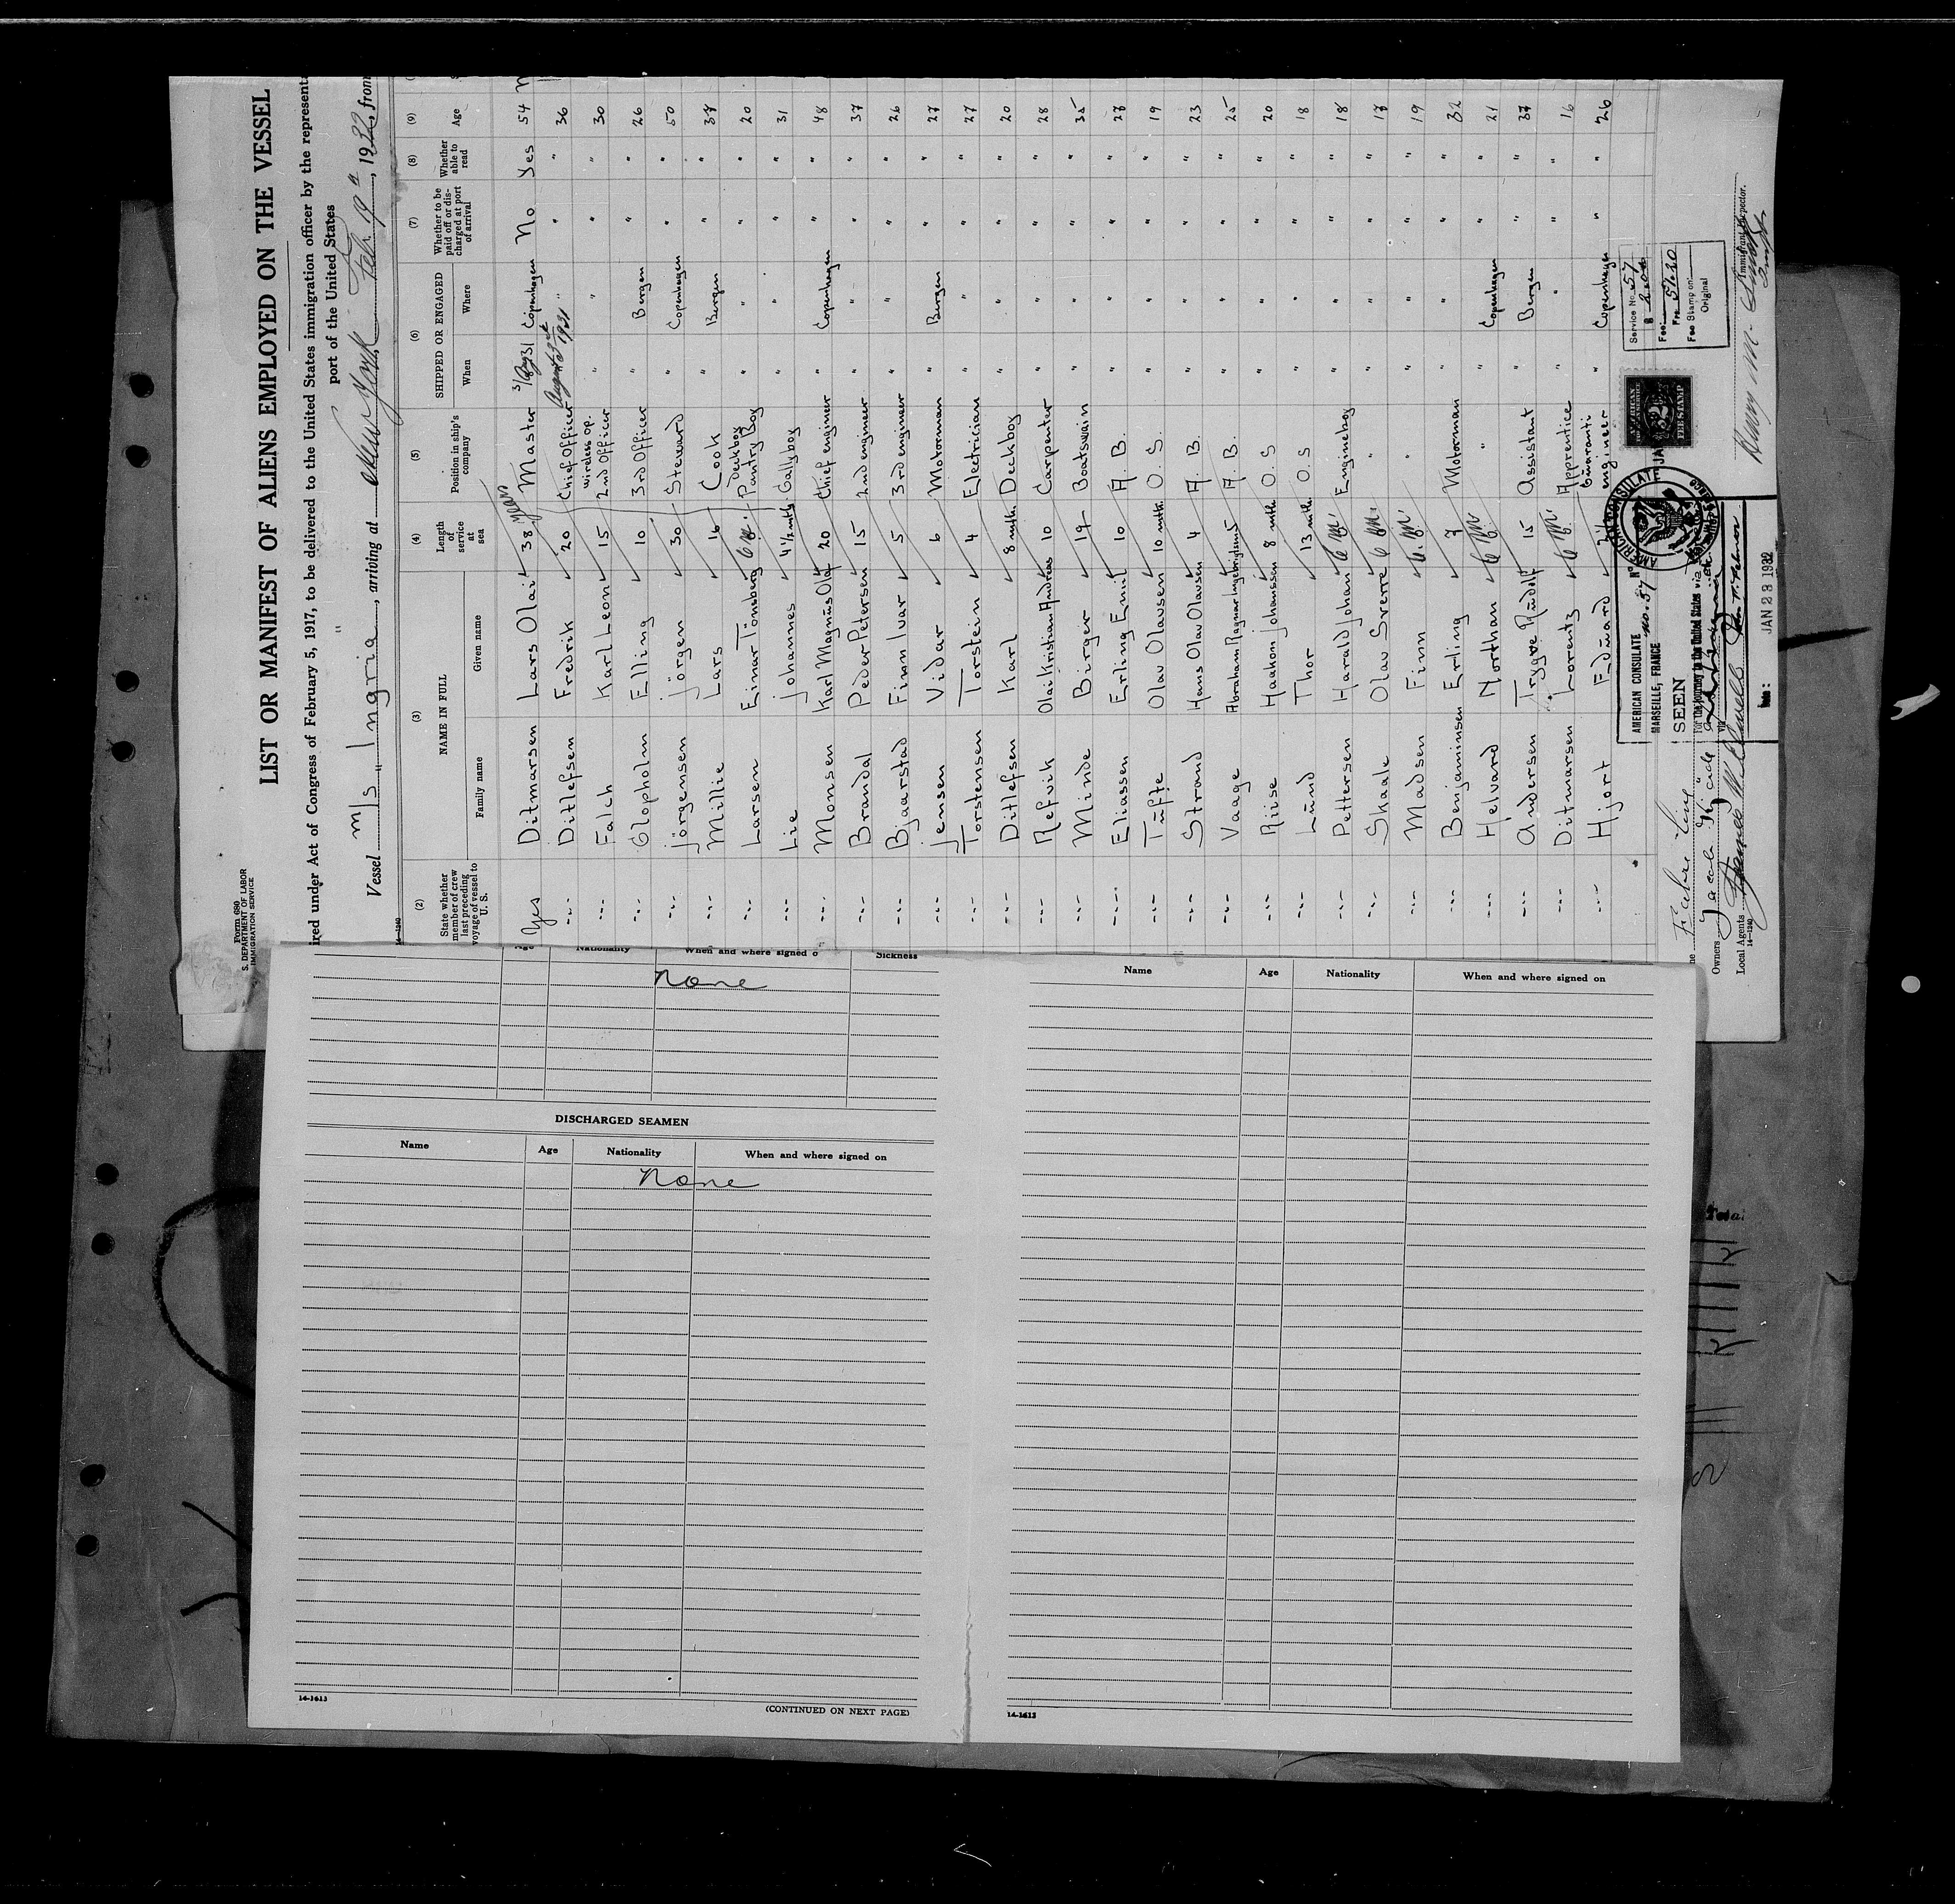 Form 680
S. DEPARTMENT OF LABOR
IMMIGRATION SERVICE
LIST OR MANIFEST OF ALIENS EMPLOYED ON THE VESSEL
ired under Act of Congress of February 5, 1917, to be delivered to the United States immigration officer by the representa
port of the United States
Vessel m/s "Ingria", arriving at New York Feb. 19", 1932, from
14—1240
(2) (3) (4) (5) (6) (7) (8) (9)
State whether member of crew last preceding voyage of vessel to U. S. NAME IN FULL Family name Given name Length of service at sea Position in ship's company SHIPPED OR ENGAGED When Where Whether to be paid off or discharged at port of arrival Whether able to read Age
Yes Ditmarsen Lars Olai 38 years Master 3/Aug 31 Copenhagen No Yes 54
-"- Ditlefsen Fredrik 20 Chief Officer 1931 " " " 36
-"- Falch Karl Leon 15 wireless op. 2nd Officer " " " " 30
-"- Olopholm Elling 10 3rd Officer " Bergen " " 26
-"- Jörgensen Jörgen 30 Steward " Copenhagen " " 50
-"- Millie Lars 16 Cook " Bergen " " 37
-"- Larsen Einar Tönsberg 6 m. Deckboy Pantry Boy " " " " 20
-"- Lie Johannes 4½ mth. Gallyboy " " " " 31
-"- Monsen Karl Magnus Olaf 20 Chief engineer " Copenhagen " " 48
-"- Brandal Peder Petersen 15 2nd engineer " " " " 37
-"- Bjaarstad Finn Ivar 5 3rd engineer " " " " 26
-"- Jensen Vidar 6 Motorman " Bergen " " 27
-"- Torstensen Torstein 4 Electrician " " " " 27
-"- Ditlefsen Karl 8 mth. Deckboy " " " " 20
-"- Refvik Olai Kristian Andreas 10 Carpenter " " " " 28
-"- Minde Birger 19 Boatswain " " " " 35
-"- Eliassen Erling Emil 10 A. B. " " " " 27
-"- Tufte Olav Olausen 10 mth. O. S. " " " " 19
-"- Strand Hans Olav Olausen 4 A. B. " " " " 23
-"- Vaage Abraham Ragnar Ingebrigtsen 5 A. B. " " " " 25
-"- Riise Haakon Johanssen 8 mth. O. S " " " " 20
-"- Lund Thor 13 mth. O. S " " " " 18
-"- Pettersen Harald Johan 6 m. Engineboy " " " " 18
-"- Skaale Olav Sverre 6 m. " " " " " 17
-"- Madsen Finn 6. m. " " " " " 19
-"- Benjaminsen Erling 7 Motorman " " " " 32
-"- Helvard Northan 6 m. " " Copenhagen " " 21
-"- Andersen Trygve Rudolf 15 Assistant " Bergen " " 37
-"- Ditmarsen Lorentz 6 m. Apprentice " " " " 16
-"- Hjort Edvard Guaranti engineer " Copenhagen " " 26
Owners Jacob Kjöde
Local Agents
14—1240
AMERICAN CONSULATE No. 57
MARSEILLE, FRANCE
SEEN
for the journey to the United States via
JAN 23 1932
AMERICAN CONSULATE
Service No. 57
Fee:
Frs 51.20
Fee Stamp on:
Original
Immigrant Inspector.
Age Nationality When and where signed o Sickness
None
DISCHARGED SEAMEN
Name Age Nationality When and where signed on
None
14-1613
(CONTINUED ON NEXT PAGE)
Name Age Nationality When and where signed on
14-1613
Total